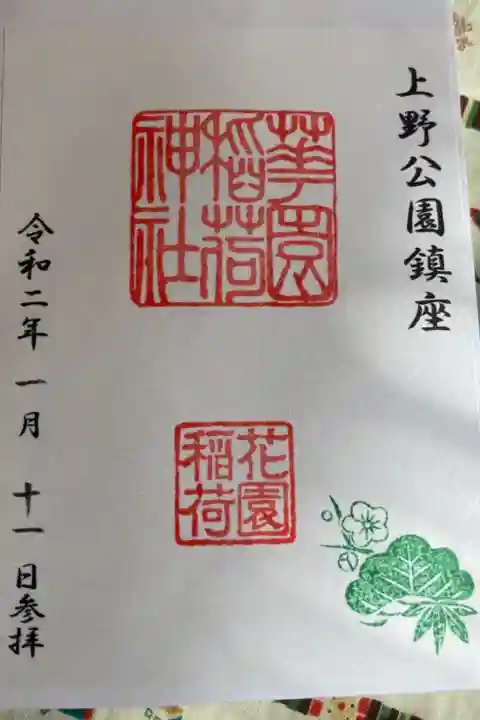 上野公園鎮座
華園
稲荷
神社
花園
稲荷
令和二年一月十一日参拝